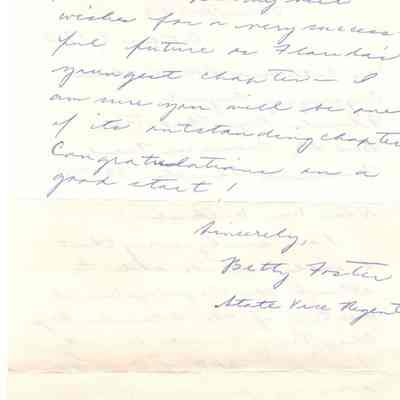 wishes for a very success
ful future as Florida's
youngest chapter — I
am sure you will be one
of its outstanding chapter
Congratulations on a
good start!
Sincerely,
Betty Foster
State Vice Regent